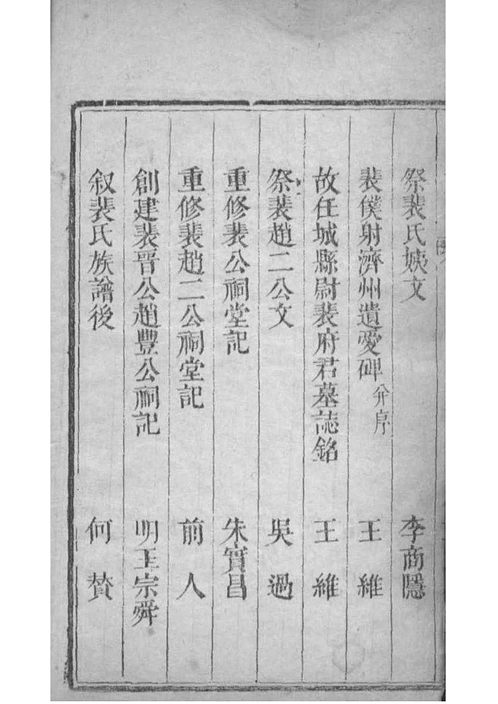 祭裴氏姨文 李商隱
裴僕射濟州遺愛碑 并序 王維
故任城縣尉裴府君墓誌銘 王維
祭裴趙二公文 吳過
重修裴公祠堂記 朱實昌
重修裴趙二公祠堂記 前人
創建裴晉公趙豐公祠記 明王宗舜
叙裴氏族譜後 何贊